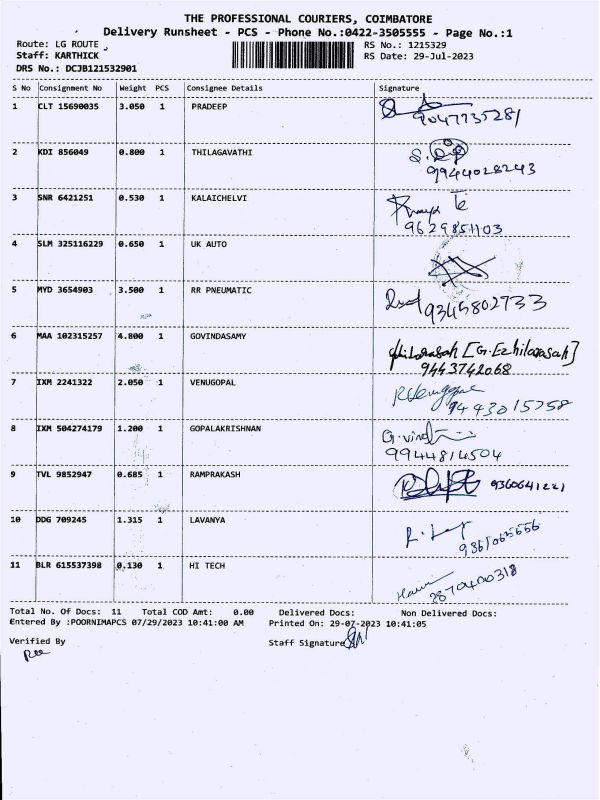 THE PROFESSIONAL COURIERS, COIMBATORE
Delivery Runsheet - PCS - Phone No.:0422-3505555 - Page No.:1
Route: LG ROUTE RS No.: 1215329
Staff: KARTHICK RS Date: 29-Jul-2023
DRS No.: DCJB121532901
S No Consignment No Weight PCS Consignee Details Signature
1 CLT 15690035 3.050 1 PRADEEP
9047735281
2 KDI 856049 0.800 1 THILAGAVATHI
9944028243
3 SNR 6421251 0.530 1 KALAICHELVI
9629851103
4 SLM 325116229 0.650 1 UK AUTO
5 MYD 3654903 3.500 1 RR PNEUMATIC
9345802733
6 MAA 102315257 4.800 1 GOVINDSAMY
[G.Ezhilarasan]
9443742068
7 IXM 2241322 2.050 1 VENUGOPAL
9443015758
8 IXM 504274179 1.200 1 GOPALAKRISHNAN
9944814504
9 TVL 9852947 0.685 1 RAMPRAKASH
9360641221
10 DDG 709245 1.315 1 LAVANYA
11 BLR 615537398 0.130 1 HI TECH
Total No. Of Docs: 11 Total COD Amt: 0.00 Delivered Docs: Non Delivered Docs:
Entered By :POORNIMAPCS 07/29/2023 10:41:00 AM Printed On: 29-07-2023 10:41:05
Verified By Staff Signature